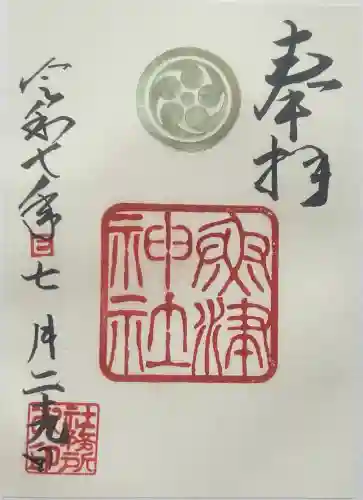 奉拝
魚津
神社
令和七年七月二十九日
社務所
之印